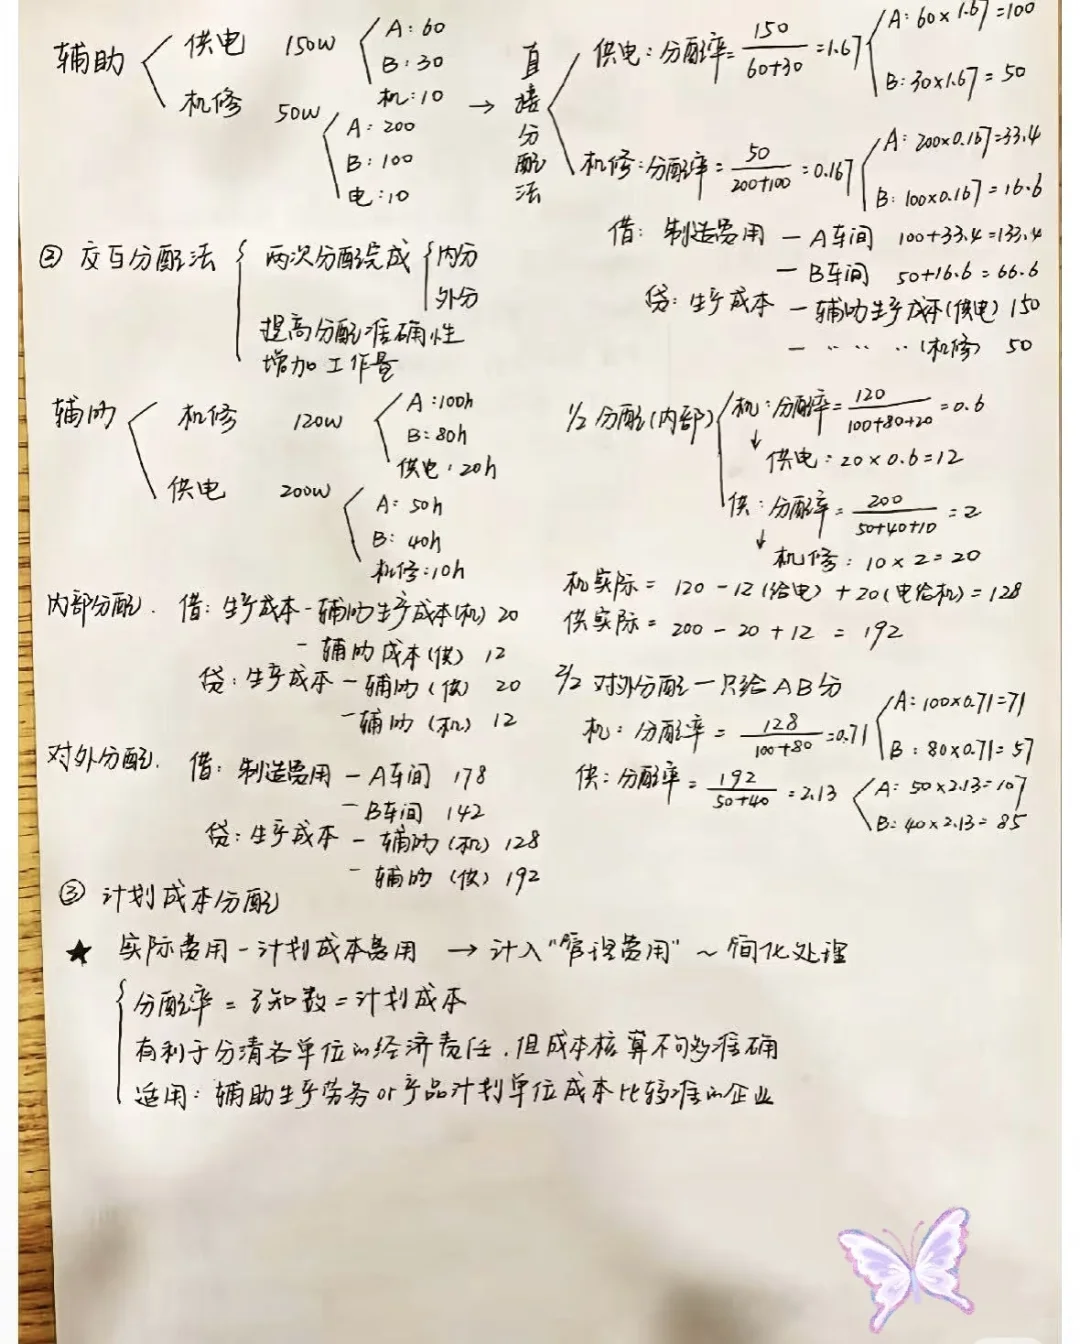 辅助 供电 150W A: 60
B: 30
机: 10
机修 50W A: 200
B: 100
电: 10
→ 直接分配法
供电: 分配率 = 150/(60+30) = 1.67 A: 60×1.67=100
B: 30×1.67=50
机修: 分配率 = 50/(200+100) = 0.167 A: 200×0.167=33.4
B: 100×0.167=16.6
借: 制造费用 — A车间 100+33.4=133.4
— B车间 50+16.6=66.6
贷: 生产成本 — 辅助生产成本(供电) 150
— 〃 〃 (机修) 50
② 交互分配法 两次分配完成 内分
外分
提高分配准确性
增加工作量
辅助 机修 120W A: 100h
B: 80h
供电: 20h
供电 200W A: 50h
B: 40h
机修: 10h
1/2 分配(内部) 机: 分配率 = 120/(100+80+20) = 0.6
↓ 供电: 20×0.6=12
供: 分配率 = 200/(50+40+10) = 2
↓ 机修: 10×2=20
机实际 = 120-12(给电)+20(电给机)=128
供实际 = 200-20+12 = 192
内部分配. 借: 生产成本-辅助生产成本(机) 20
- 辅助成本(供) 12
贷: 生产成本 — 辅助(供) 20
— 辅助(机) 12
2/2 对外分配 — 只给AB分
机: 分配率 = 128/(100+80) = 0.71 A: 100×0.71=71
B: 80×0.71=57
供: 分配率 = 192/(50+40) = 2.13 A: 50×2.13=107
B: 40×2.13=85
对外分配. 借: 制造费用 — A车间 178
— B车间 142
贷: 生产成本 — 辅助(机) 128
- 辅助(供) 192
③ 计划成本分配
★ 实际费用-计划成本费用 → 计入"管理费用" ~ 简化处理
分配率 = 已知数 = 计划成本
有利于分清各单位的经济责任, 但成本核算不够准确
适用: 辅助生产劳务or产品计划单位成本比较准的企业